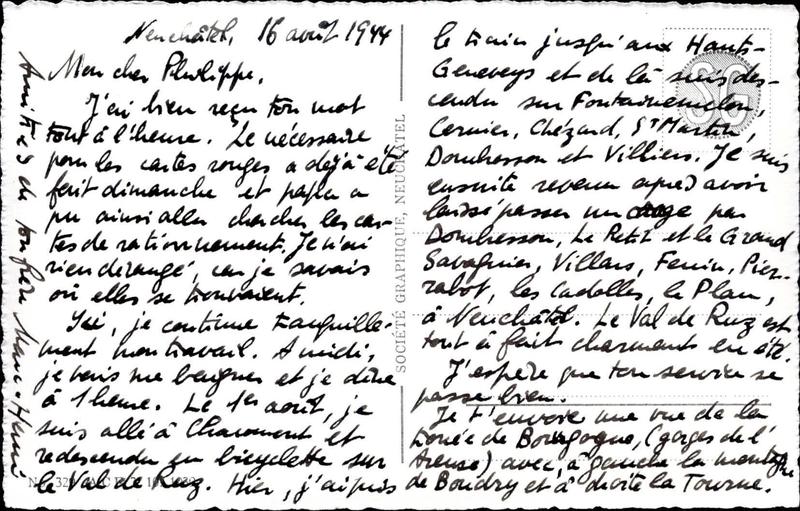 Neuchâtel, 16 août 1944
Mon cher Philippe,
J'ai bien reçu ton mot
tout à l'heure. Le nécessaire
pour les cartes rouges a déjà été
fait dimanche et papa a
pu ainsi aller chercher les car-
tes de rationnement. Je n'ai
rien dérangé, car je savais
où elles se trouvaient.
Ici, je continue tranquille-
ment mon travail. A midi,
je vais me baigner et je dîne
à 1 heure. Le 1er août, je
suis allé à Chaumont et
redescendu en bicyclette sur
le Val de Ruz. Hier, j'ai pris
le train jusqu'aux Hauts-
Geneveys et de là suis des-
cendu sur Fontainemelon,
Cernier, Chézard, St Martin,
Dombresson et Villiers. Je suis
ensuite revenu après avoir
laissé passer un orage par
Dombresson, Le Petit et le Grand
Savagnier, Villars, Fenin, Pier-
rabot, les Cadolles, le Plan,
à Neuchâtel. Le Val de Ruz est
tout à fait charmant en été.
J'espère que ton service se
passe bien.
Je t'envoie une vue de la
trouée de Bourgogne, (gorges de l'
Areuse) avec, à gauche la montagne
de Boudry et à droite la Tourne.
Amitiés de ton frère Marc-Henri
SOCIÉTÉ GRAPHIQUE, NEUCHATEL
SG